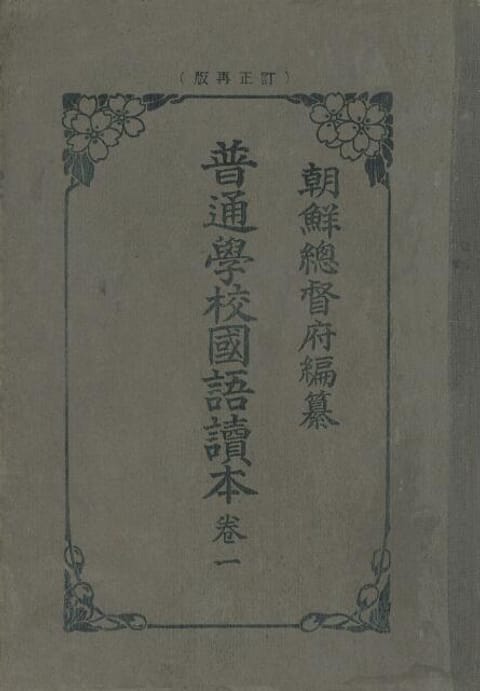 （訂正再版）
朝鮮總督府編纂
普通學校國語讀本 卷一